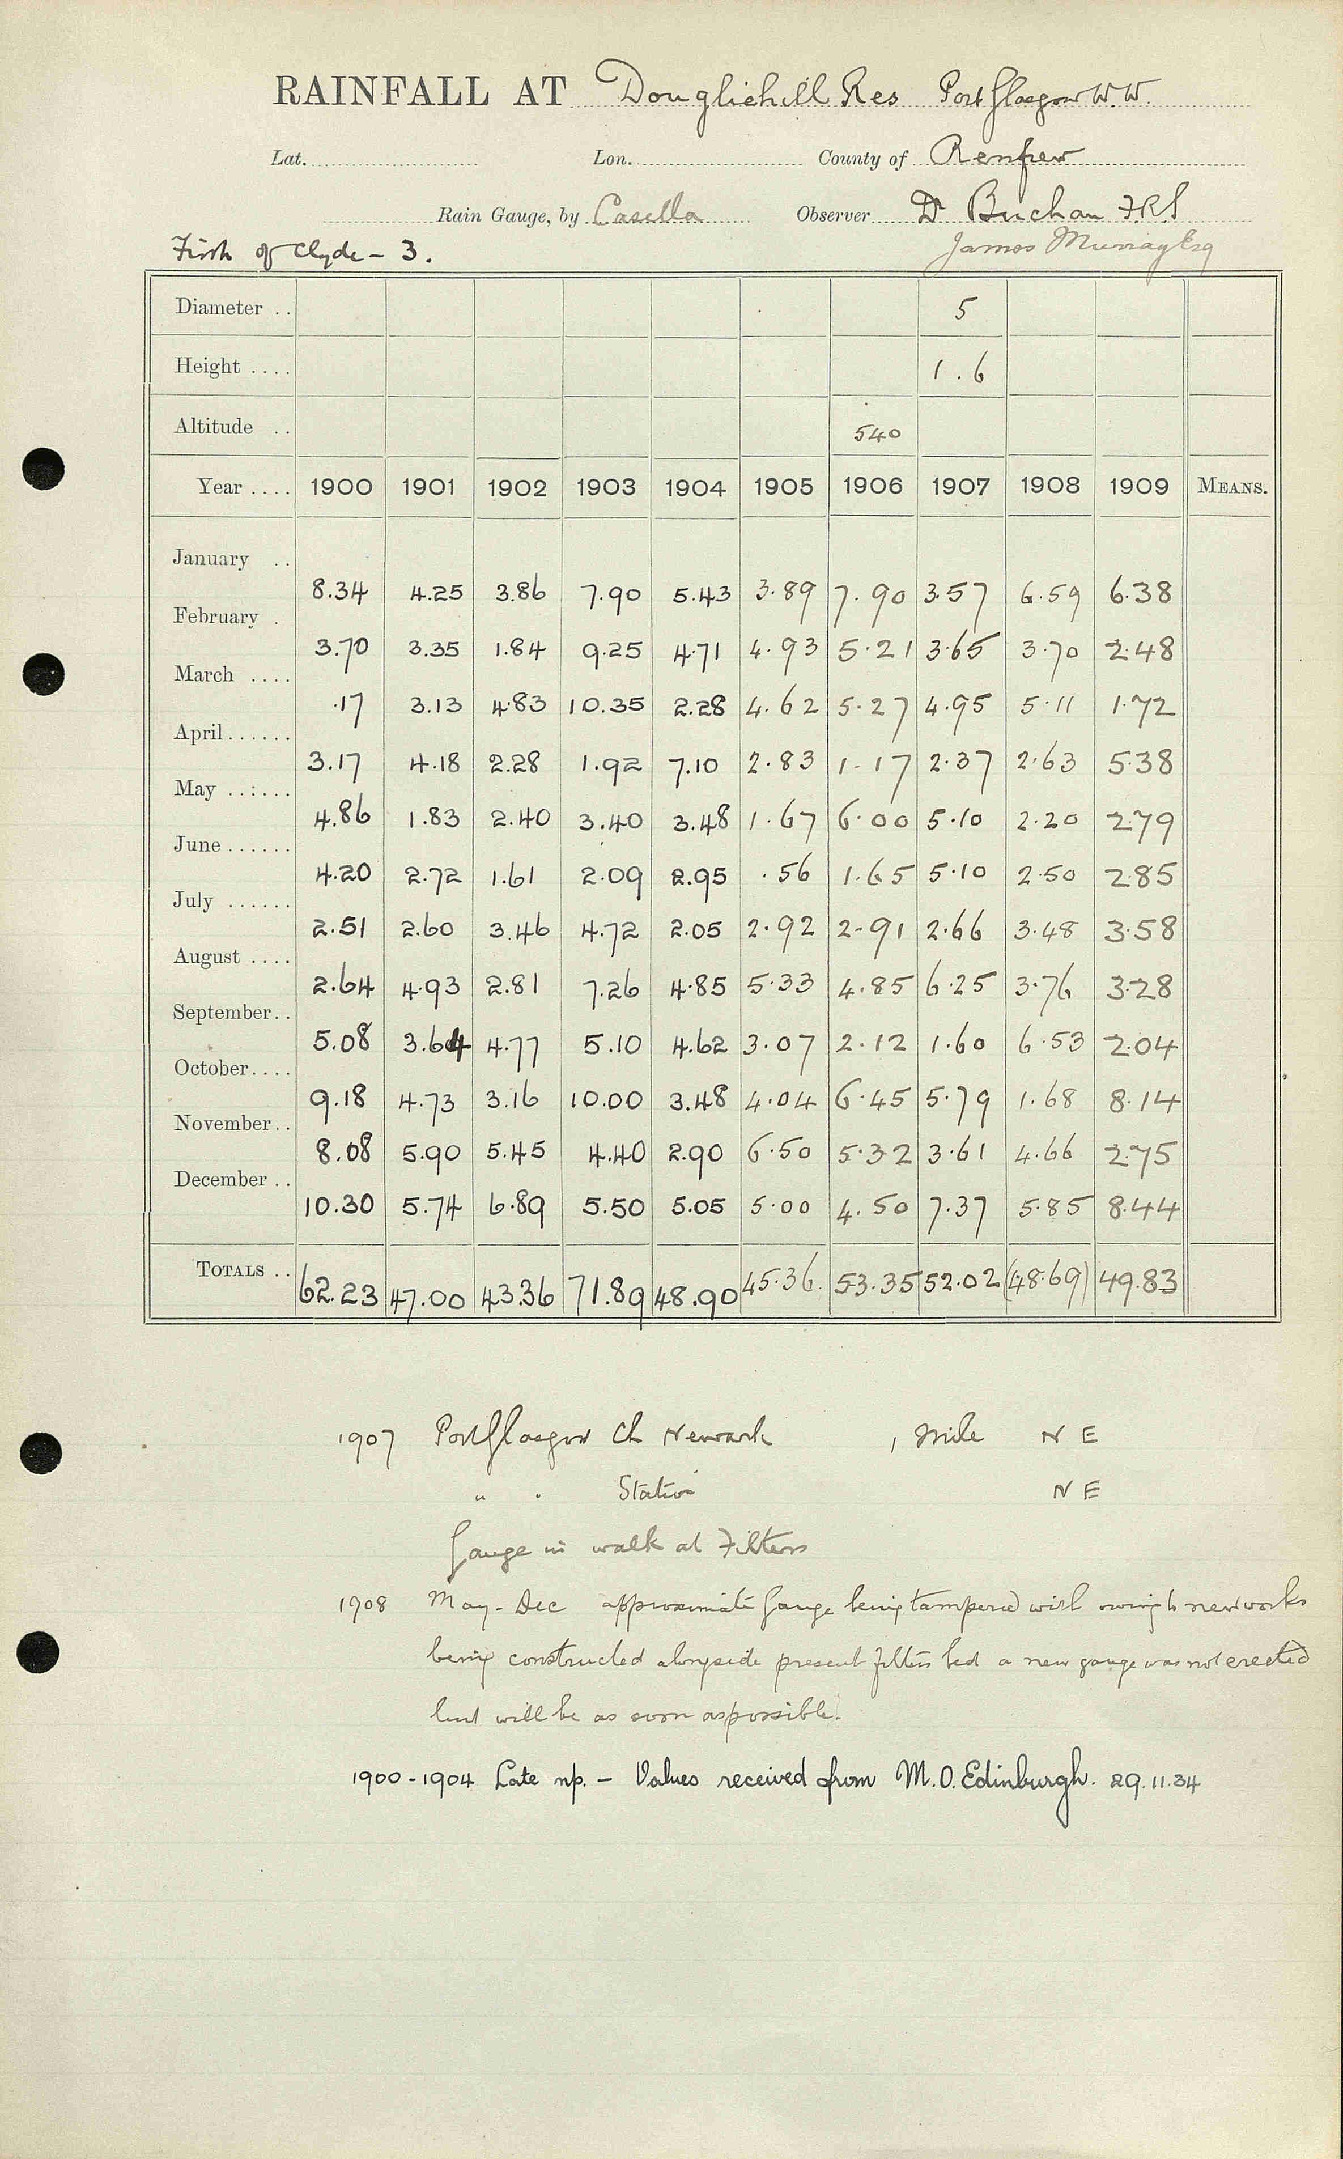 RAINFALL AT Douglichill Res Port Glasgow W.W.
Lat. Lon. County of Renfrew
Rain Gauge, by Casella Observer Dr Buchan F.R.S
Firth of Clyde - 3. James Murray Esq
Diameter .. 5
Height .... 1.6
Altitude .. 540
Year .... 1900 1901 1902 1903 1904 1905 1906 1907 1908 1909 MEANS.
January .. 8.34 4.25 3.86 7.90 5.43 3.89 7.90 3.57 6.59 6.38
February . 3.70 3.35 1.84 9.25 4.71 4.93 5.21 3.65 3.70 2.48
March .... .17 3.13 4.83 10.35 2.28 4.62 5.27 4.95 5.11 1.72
April...... 3.17 4.18 2.28 1.92 7.10 2.83 1.17 2.37 2.63 5.38
May ...... 4.86 1.83 2.40 3.40 3.48 1.67 6.00 5.10 2.20 2.79
June ...... 4.20 2.72 1.61 2.09 2.95 .56 1.65 5.10 2.50 2.85
July ...... 2.51 2.60 3.46 4.72 2.05 2.92 2.91 2.66 3.48 3.58
August .... 2.64 4.93 2.81 7.26 4.85 5.33 4.85 6.25 3.76 3.28
September.. 5.08 3.64 4.77 5.10 4.62 3.07 2.12 1.60 6.53 2.04
October.... 9.18 4.73 3.16 10.00 3.48 4.04 6.45 5.79 1.68 8.14
November.. 8.08 5.90 5.45 4.40 2.90 6.50 5.32 3.61 4.66 2.75
December .. 10.30 5.74 6.89 5.50 5.05 5.00 4.50 7.37 5.85 8.44
TOTALS .. 62.23 47.00 43.36 71.89 48.90 45.36. 53.35 52.02 (48.69) 49.83
1907 Port Glasgow Ch Newark 1 Mile N E
" . Station N E
Gauge in walk at Filters
1908 May - Dec approximate Gauge being tampered with owing to new works
being constructed alongside present filters bed a new gauge was not erected
but will be as soon as possible.
1900-1904 Late np. - Values received from M.O. Edinburgh. 29.11.34